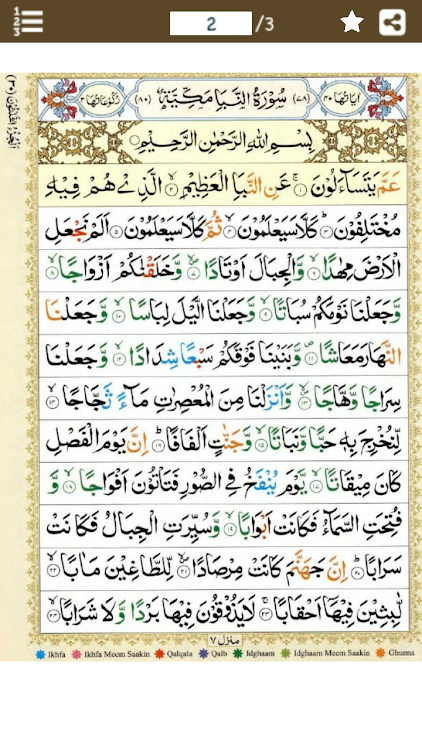 1 2 3
2 /3
الجزء الثلاثون (٣٠)
اٰیاتها ٤٠ (٧٨) سُوْرَةُ النَّبَاِ مَكِّيَّةٌ (٨٠) رکوعاتها ٢
بِسْمِ اللهِ الرَّحْمٰنِ الرَّحِيْمِ
عَمَّ يَتَسَآءَلُوْنَ ۚ‏﴿۱﴾ عَنِ النَّبَاِ الْعَظِيْمِ ۙ‏﴿۲﴾ الَّذِىْ هُمْ فِيْهِ
مُخْتَلِفُوْنَ ؕ‏﴿۳﴾ كَلَّا سَيَعْلَمُوْنَ ۙ‏﴿۴﴾ ثُمَّ كَلَّا سَيَعْلَمُوْنَ‏﴿۵﴾ اَلَمْ نَجْعَلِ
الْاَرْضَ مِهٰدًا ۙ‏﴿۶﴾ وَّالْجِبَالَ اَوْتَادًا ۙ‏﴿۷﴾ وَّخَلَقْنٰكُمْ اَزْوَاجًا ۙ‏﴿۸﴾
وَّجَعَلْنَا نَوْمَكُمْ سُبَاتًا ۙ‏﴿۹﴾ وَّجَعَلْنَا الَّيْلَ لِبَاسًا ۙ‏﴿۱۰﴾ وَّجَعَلْنَا
النَّهَارَ مَعَاشًا ۪‏﴿۱۱﴾ وَّبَنَيْنَا فَوْقَكُمْ سَبْعًا شِدَادًا ۙ‏﴿۱۲﴾ وَّجَعَلْنَا
سِرَاجًا وَّهَّاجًا ۙ‏﴿۱۳﴾ وَّاَنْزَلْنَا مِنَ الْمُعْصِرٰتِ مَآءً ثَجَّاجًا ۙ‏﴿۱۴﴾
لِّنُخْرِجَ بِهٖ حَبًّا وَّنَبَاتًا ۙ‏﴿۱۵﴾ وَّجَنّٰتٍ اَلْفَافًا ؕ‏﴿۱۶﴾ اِنَّ يَوْمَ الْفَصْلِ
كَانَ مِيْقَاتًا ۙ‏﴿۱۷﴾ يَّوْمَ يُنْفَخُ فِى الصُّوْرِ فَتَاْتُوْنَ اَفْوَاجًا ۙ‏﴿۱۸﴾ وَّ
فُتِحَتِ السَّمَآءُ فَكَانَتْ اَبْوَابًا ۙ‏﴿۱۹﴾ وَّسُيِّرَتِ الْجِبَالُ فَكَانَتْ
سَرَابًا ؕ‏﴿۲۰﴾ اِنَّ جَهَنَّمَ كَانَتْ مِرْصَادًا ۙ‏﴿۲۱﴾ لِّلطَّاغِيْنَ مَاٰبًا ۙ‏﴿۲۲﴾
لّٰبِثِيْنَ فِيْهَاۤ اَحْقَابًا ۚ‏﴿۲۳﴾ لَا يَذُوْقُوْنَ فِيْهَا بَرْدًا وَّلَا شَرَابًا ۙ‏﴿۲۴﴾
منزل ٧
Ikhfa Ikhfa Meem Saakin Qalqala Qalb Idghaam Idghaam Meem Saakin Ghunna